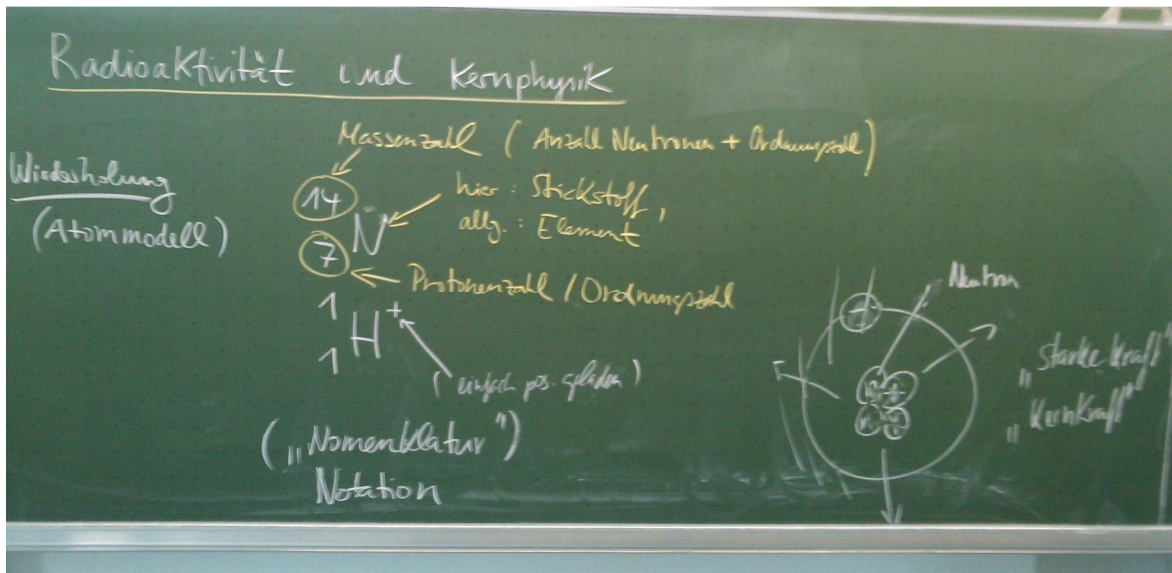 Radioaktivität und Kernphysik
Wiederholung
(Atommodell)
Massenzahl (Anzahl Neutronen + Ordnungszahl)
14
7
N
hier: Stickstoff,
allg.: Element
Protonenzahl / Ordnungszahl
1
1
H+
(einfach pos. geladen)
("Nomenklatur")
Notation
-
Neutron
n +
n +
„Starke Kraft"
„Kernkraft"